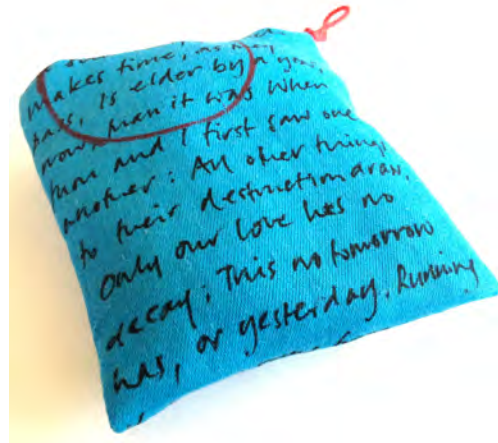 makes time, as they
pass, is elder by a year,
now, than it was when
thou and I first saw one
another: All other things,
to their destruction draw,
Only our love has no
decay; This no tomorrow
has, or yesterday. Running